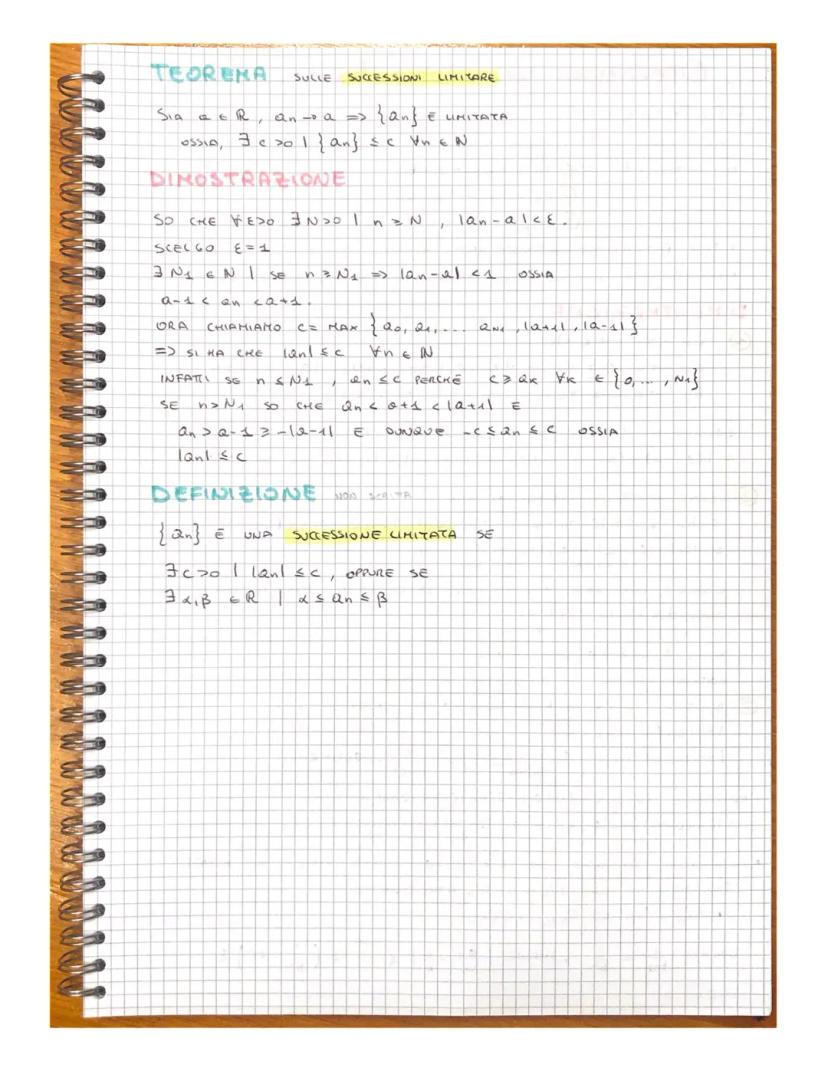 TEOREMA SULLE SUCCESSIONI LIMITARE
SIA a ∈ R, an → a => {an} È LIMITATA
OSSIA, ∃ c >0 | {an} ≤ c ∀n ∈ N
DIMOSTRAZIONE
SO CHE ∀ε>0 ∃N>0 | n ≥ N, |an-a|<ε.
SCELGO ε=1
∃ N1 ∈ N | SE n ≥ N1 => |an-a| <1 OSSIA
a-1 < an < a+1.
ORA CHIAMIAMO C= MAX {a0, a1, ... aN1, |a+1|, |a-1|}
=> SI HA CHE |an| ≤ c ∀n ∈ N
INFATTI SE n ≤ N1, an ≤ c PERCHÉ c ≥ ak ∀k ∈ {0, ..., N1}
SE n > N1 SO CHE an < a+1 < |a+1| E
an > a-1 ≥ -|a-1| E DUNQUE -c ≤ an ≤ c OSSIA
|an| ≤ c
DEFINIZIONE NON SCRITTA
{an} È UNA SUCCESSIONE LIMITATA SE
∃c>0 | |an| ≤ c, OPPURE SE
∃ α,β ∈ R | α ≤ an ≤ β